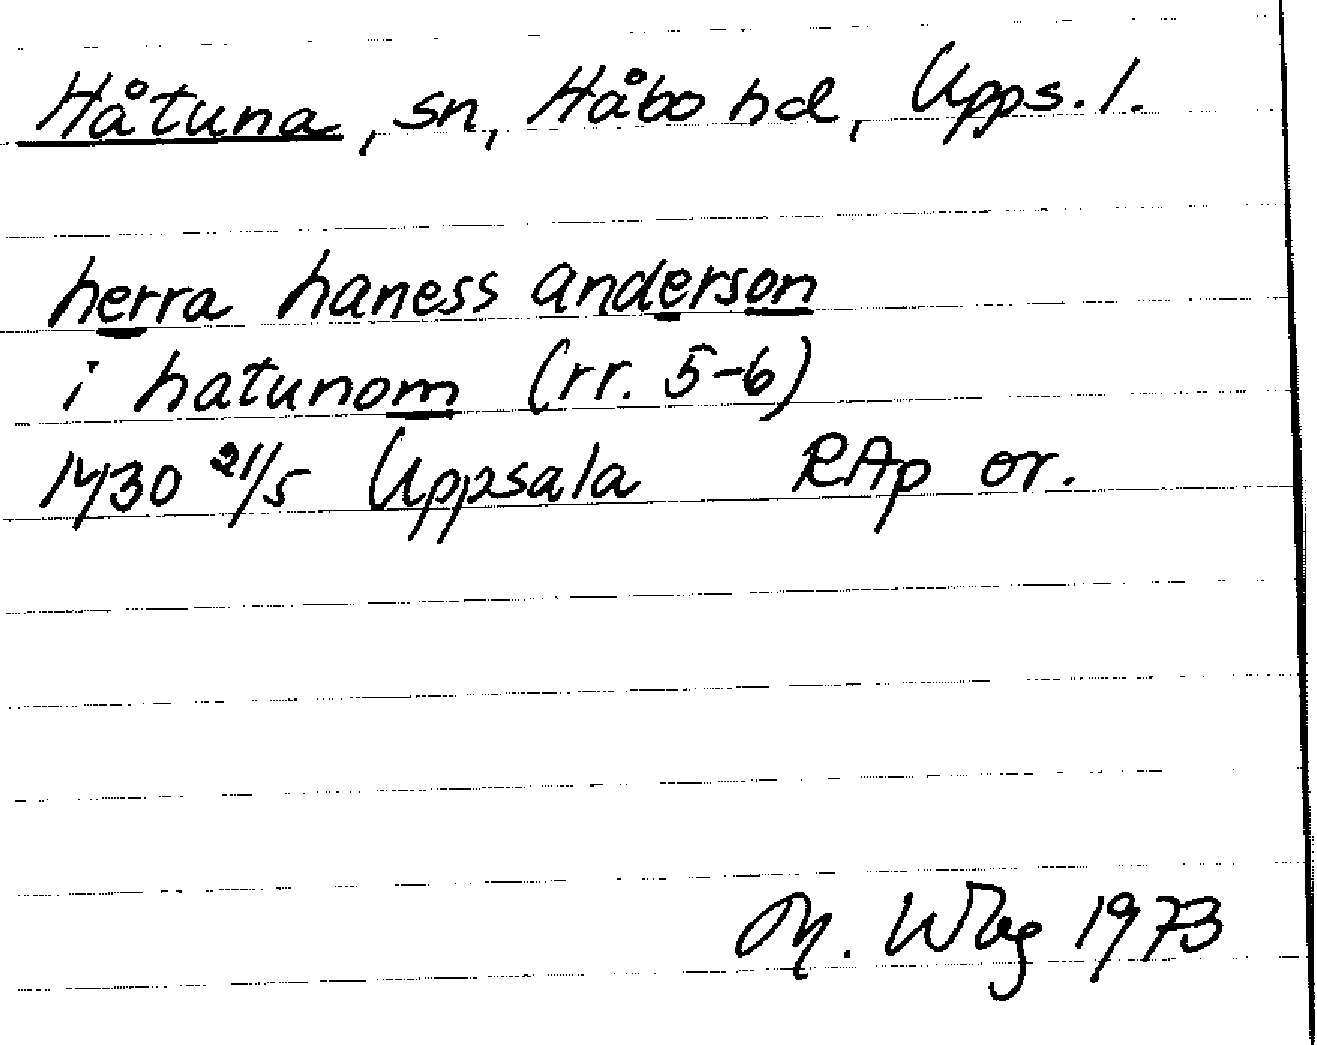 Håtuna, sn, Håbo hd, Upps. l.
herra haness anderson
i hatunom (rr. 5-6)
1430 21/5 Uppsala RAp or.
M. Wbg 1973